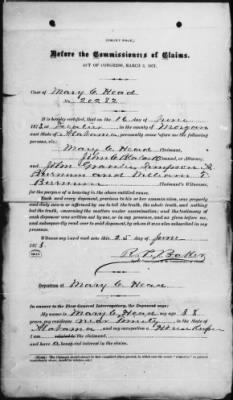 Before the Commissioners of Claims.
ACT OF CONGRESS, MARCH 3, 1871.
Case of Mary C. Head
No. 20282
It is hereby certified, that on the 16 day of June
187 , at Decatur in the county of Morgan
and State of Alabama, personally came before me the following
persons, viz:
Mary C. Head Claimant,
Counsel, or Attorney,
and John
and William
Claimant's Witnesses,
for the purpose of a hearing in the above entitled cause.
Each and every deponent, previous to his or her examination, was properly
and duly sworn or affirmed by me to tell the truth, the whole truth, and nothing
but the truth, concerning the matters under examination; and the testimony of
each deponent was written out by me, or in my presence, and as given before me,
and subsequently read over to said deponent, by whom it was also signed in my
presence.
Witness my hand and seal this 25 day of June
187
Deposition of Mary C. Head
In answer to the First General Interrogatory, the Deponent says:
My name is Mary C. Head my age 58
years, my residence near Trinity, in the State of
Alabama, and my occupation a House Keeper
I am the claimant,
and have interest in the claim.